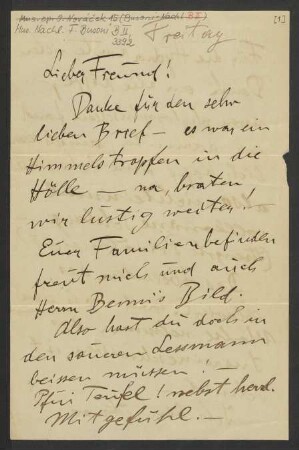 Mus. Nachl. F. Busoni B II,
3392
[1]
Freitag
Lieber Freund!
Danke für den sehr
lieben Brief – es war ein
Himmelstropfen in die
Hölle – na, braten
wir lustig weiter!
Euer Familienbefinden
freut mich und auch
Herrn Benni's Bild.
Also hast du doch in
den sauren Lessmann
beissen müssen! –
Pfui Teufel! nebst herzl.
Mitgefühl. –